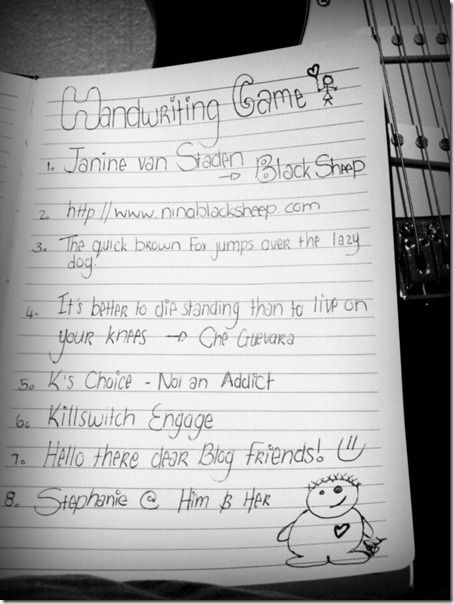 Handwriting Game
1. Janine van Staden → Black Sheep
2. http//www.ninablacksheep.com
3. The quick brown fox jumps over the lazy
dog.
4. It's better to die standing than to live on
your knees → Che Guevara
5. K's Choice - Not an Addict
6. Killswitch Engage
7. Hello there dear Blog friends!
8. Stephanie @ Him & Her